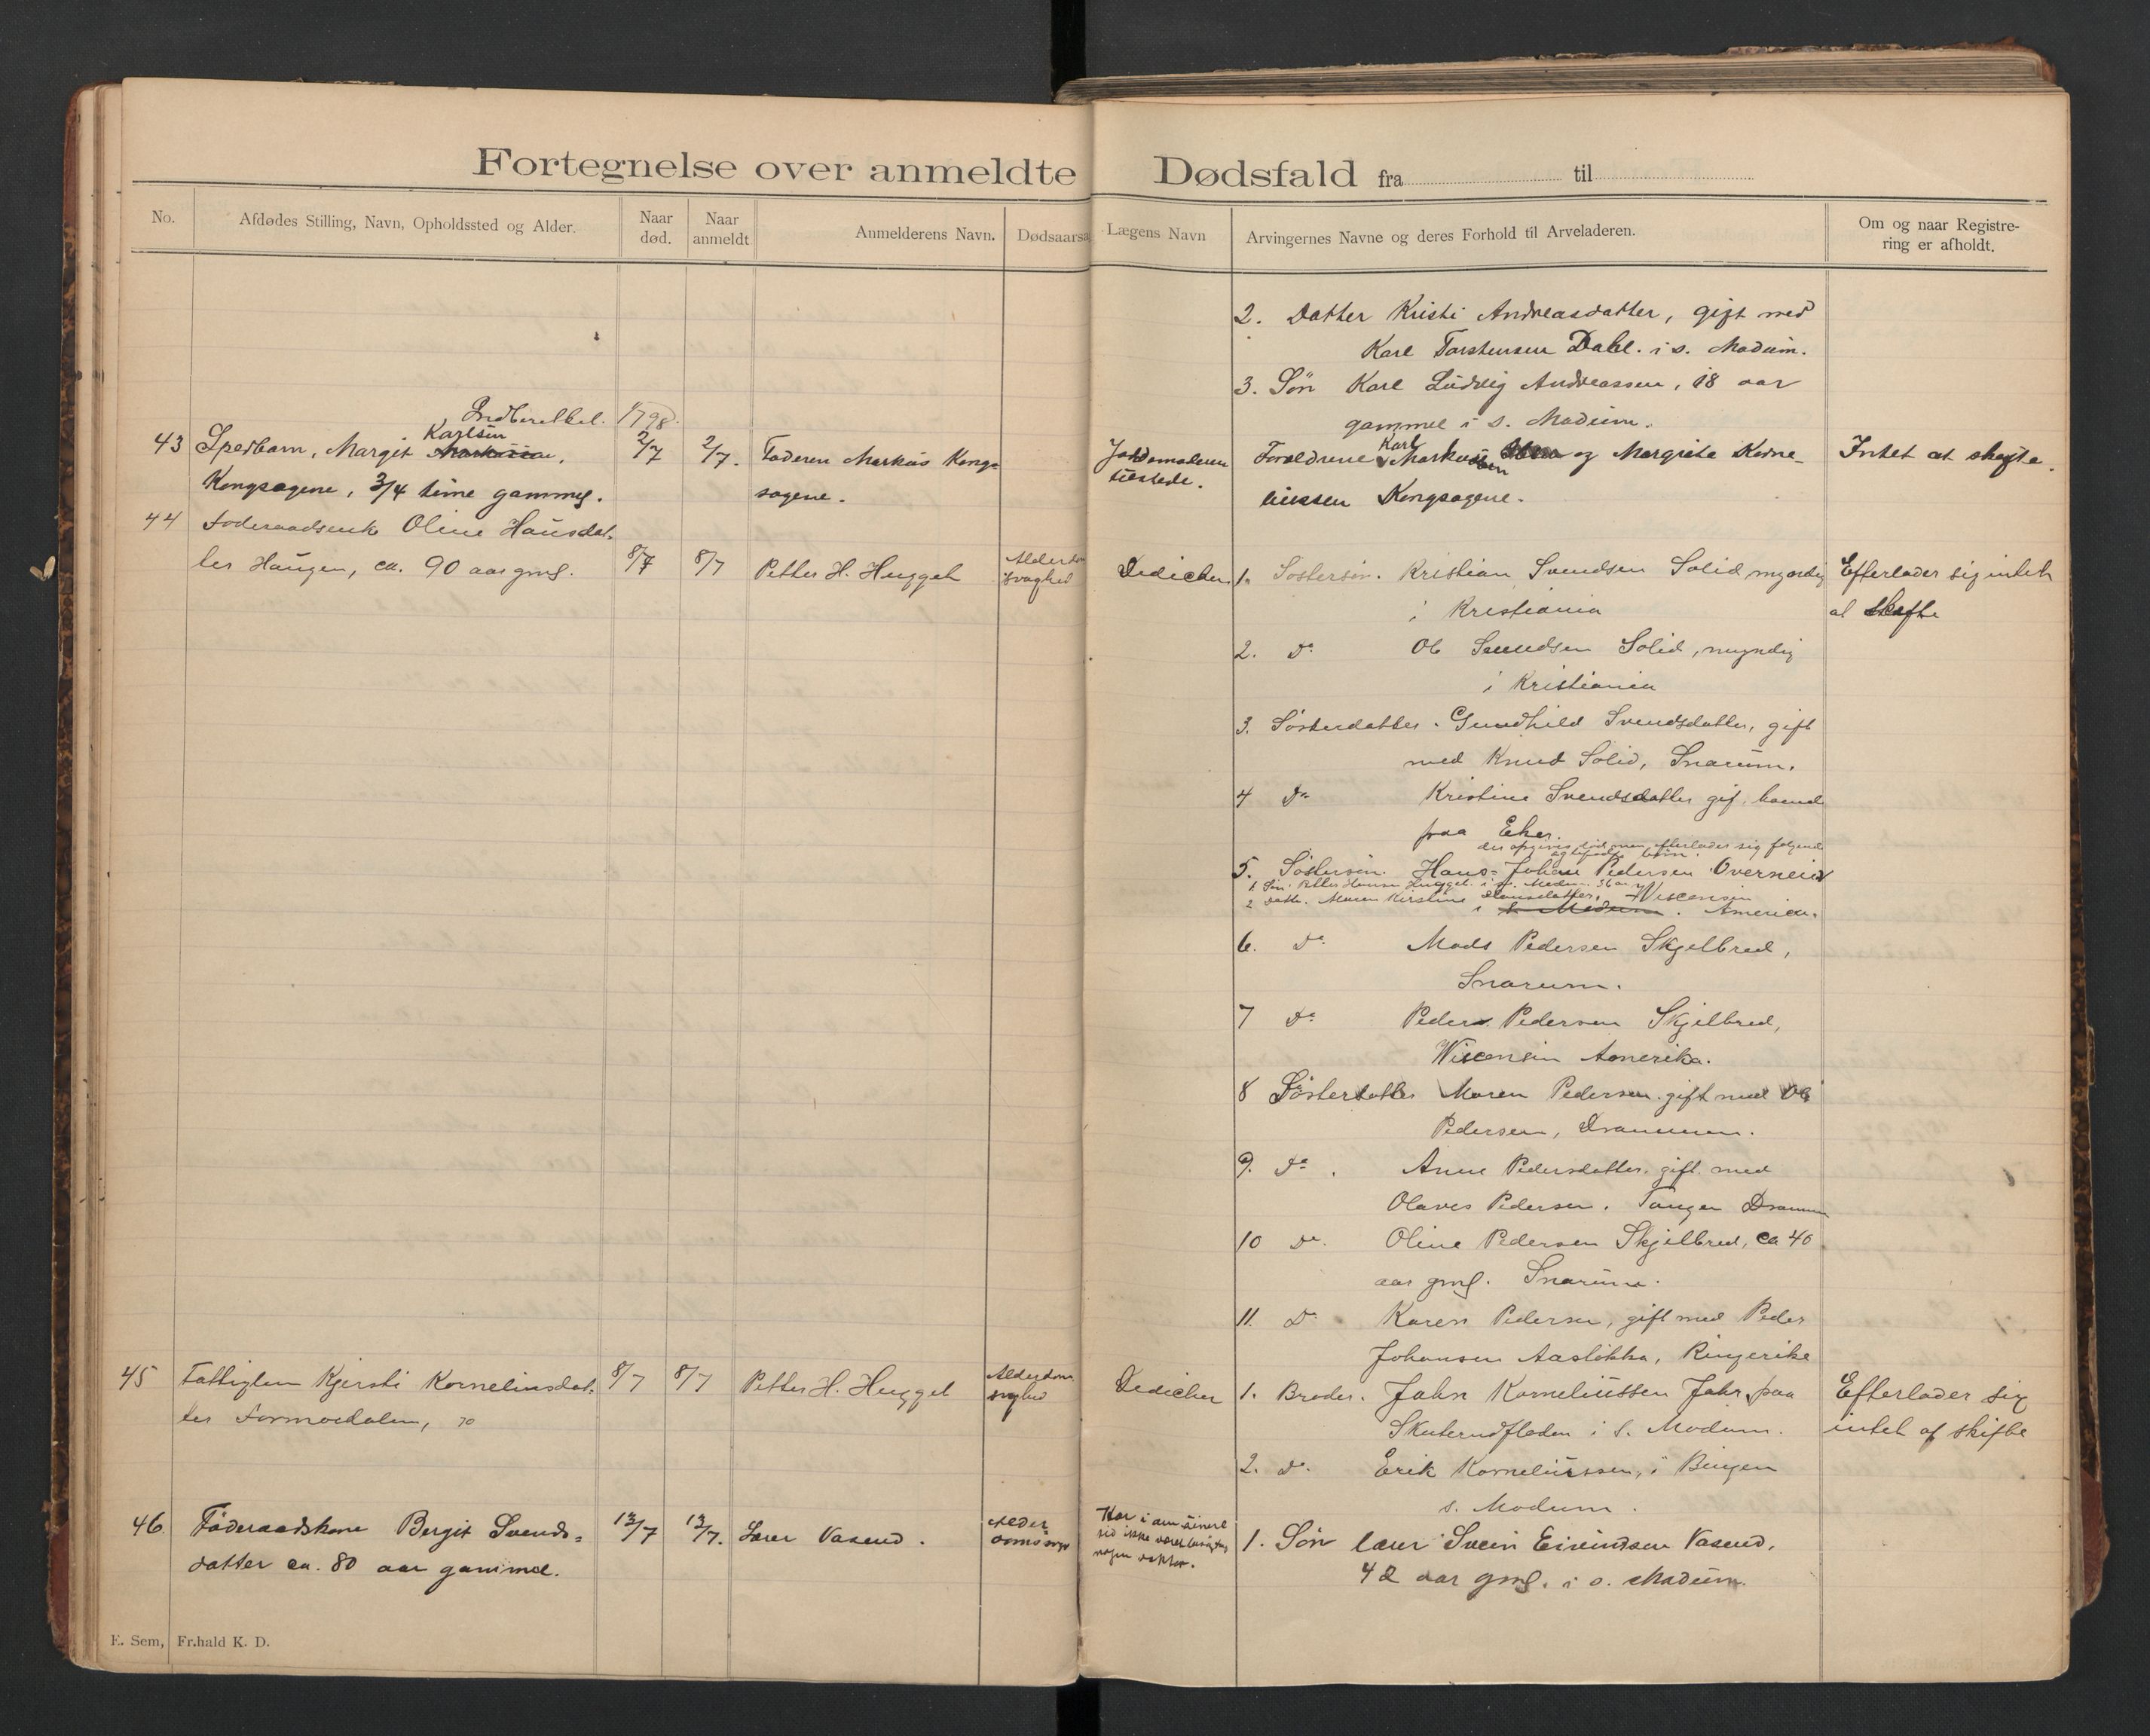 Fortegnelse over anmeldte Dødsfald fra til
No.
Afdødes Stilling, Navn, Opholdssted og Alder.
Naar død.
Naar anmeldt
Anmelderens Navn.
Dødsaarsa
Lægens Navn
Arvingernes Navne og deres Forhold til Arveladeren.
Om og naar Registre-
ring er afholdt.
2. Datter Kristi Andreasdatter, gift med
Karl Torstensen Dahl. i s. Modum.
3. Søn Karl Ludvig Andreassen, 18 aar
gammel i s. Modum.
Indberettet. 1/7 98.
Karlsen
43 Spedbarn, Margit
Kongsagene, 3/4 time gammel.
2/7
2/7.
Faderen Markus Kongs
sagene.
Jordemoderen
tilstede.
Karl
Forældrene Markussen og Margrete Korne-
liussen Kongsagene.
Intet at skifte.
44 Føderaadsenke Oline Hansdat-
ter Haugen, ca. 90 aar gml.
8/7
8/7
Petter H. Hugget
Alderdom
svaghed
Dedichen
1. Søstersøn. Kristian Svendsen Solid, myndig
i Kristiania
Efterlader sig intet
at skifte
2. Do Ole Svendsen Solid, myndig
i Kristiania
3. Søsterdatter. Gundhild Svendsdatter, gift
med Knud Solid, Snarum.
4 Do Kristine Svendsdatter gift
paa Eker.
der opgives død men efterlader sig følgende
børn.
5. Søstersøn. Hans Johan Pedersen Overneid
1. Søn. Petter Hansen Hugget. i s. Modum. 36 aar
2 Datt. Maren Kirstine Hansdatter, Wisconsin
i s. Modum. America.
6. Do Mads Pedersen Skjelbred,
Snarum.
7 Do Peder Pedersen Skjelbred,
Wisconsin Amerika.
8 Søsterdatter Maren Pedersen gift med Ole
Pedersen, Drammen.
9. Do. Anne Pedersdatter. gift med
Olaves Pedersen. Tangen Drammen
10 Do. Oline Pedersen Skjelbred, ca 40
aar gml. Snarum.
11. Do Karen Pedersen, gift med Peder
Johansen Aasløkka, Ringerike
45 Fattiglem Kjersti Korneliusdat-
ter Formodalen, 70
8/7
8/7
Petter H. Hugget
Alderdoms
svghed
Dedichen
1. Broder. Jahn Korneliussen Jahr, paa
Skuterudfladen i s. Modum.
Efterlader sig
intet at skifte
2. Do. Erik Korneliussen, i Bingen
s. Modum.
46. Føderaadskone Bergit Svends-
datter ca. 80 aar gammel.
12/7
12/7.
Lærer Vasend.
Alder
doms
Har i den senere
tid ikke været
nogen doktor.
1. Søn lærer Svein Eivindsen Vasend,
42 aar gml. i s. Modum.
E. Sem, Fr.hald K. D.